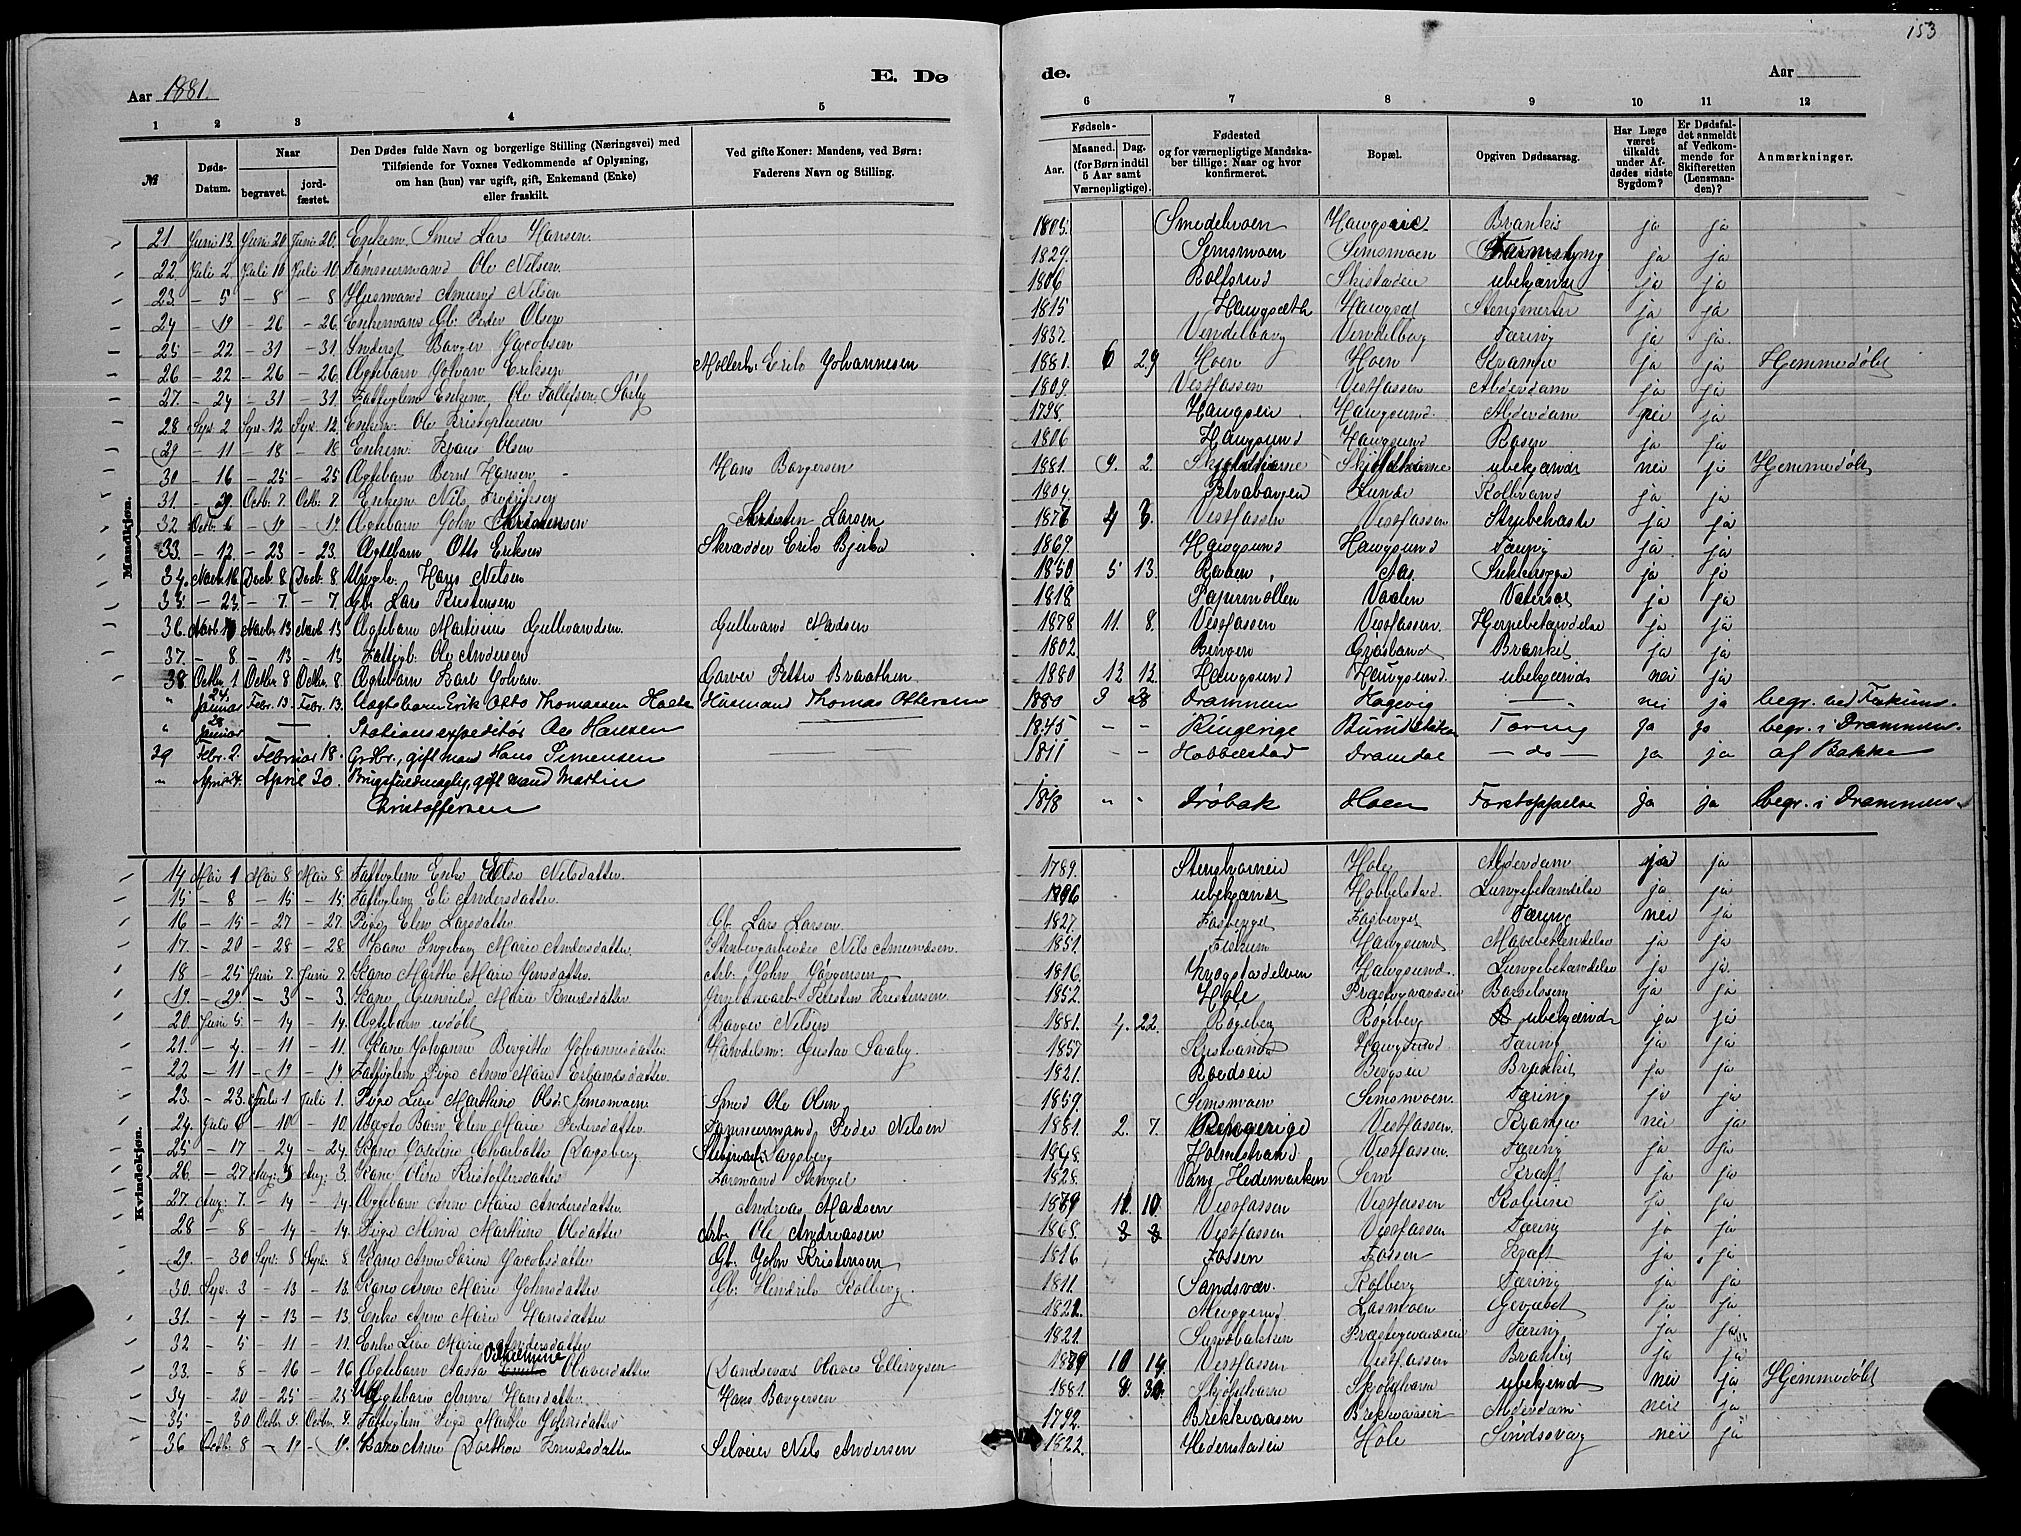 153
E. Dø de.
Aar 1881. Aar
1 2 3 4 5 6 7 8 9 10 11 12
№ Døds-Datum. Naar begravet. jordfæstet. Den Dødes fulde Navn og borgerlige Stilling (Næringsvei) med Tilføiende for Voxnes Vedkommende af Oplysning, om han (hun) var ugift, gift, Enkemand (Enke) eller fraskilt. Ved gifte Koner: Mandens, ved Børn: Faderens Navn og Stilling. Fødsels- Aar. Maaned. Dag. (for Børn indtil 5 Aar samt Værnepligtige). Fødested og for værnepligtige Mandskaber tillige: Naar og hvor konfirmeret. Bopæl. Opgiven Dødsaarsag. Har Læge været tilkaldt under Afdødes sidste Sygdom? Er Dødsfaldet anmeldt af Vedkommende for Skifteretten (Lensmanden)? Anmærkninger.
Mandkjøn.
21. Juni 13. Juni 20 Juni 20. Enkem. Smed Lars Hansen. 1805. Brankit ja ja
22 Juli 2 Juli 10 Juli 10 Tømmermand Ole Nilsen. 1829. Semsmoen Semsmoen ja ja
23. – 5 – 8 – 8 Husmand Amund Nilsen 1806 Rollsrud ubekjendt ja ja
24 – 19 – 26 – 26. Enkemand Gb: Peder Olsen 1815 Haugsæth Stensmerter ja ja
25 – 22 – 31 – 31. Inderst Børger Jacobsen 1837. Vendelborg Vendelborg Tæring ja ja
26 – 22 – 26 – 26. Ægtebarn Johan Eriksen Møllerk: Erik Johannesen 1881. 6 29 Hoen Hoen Krampe ja ja Hjemmedøbt
27. – 24 – 31 – 31. Fattiglem Enkem. Ole 1809. Vestfossen Vestfossen Alderdom ja ja
28 Sept. 2 Sept. 12 Sept. 12. Enkem: Ole Kristophersen 1798. Haugsund Alderdom nei ja
29 – 11 – 18 – 18 Enkem: Olsen 1806 Haugsund Haugsund Rosen ja ja
30 – 16 – 25 – 25 Ægtebarn Bernt Hansen – Hans Borgersen 1881. 9. 2. ubekjendt nei ja Hjemmedøbt
31. – 29 Octb. 7. Octb. 7. Enkem Nils 1804. Koldbrand ja ja
32. Octb. 6 – 19 – 19. Ægtebarn John Larsen 1876 4 3. Vestfossen Vestfossen Strubehoste ja ja
33. – 12. – 23 – 23. Ægtebarn Otto Eriksen Skrædder Erik 1869. Haugsund Haugsund Tæring ja ja
34. Novb. 16 Decb. 8 Decb. 8 Ungk. Hans Nilsen 1850. 5 13. Aas. Sukkersyge ja ja
35. – 23. – 7. – 7. Gb. Lars Kristensen 1818. Papirmøllen Vatersot ja ja
36. Novb. Novb. 13 Novb. 13 Ægtebarn Martinius Gulbrandsen. Gulbrand Madsen 1878 11. 8. Vestfossen Vestfossen. Hjernebetændelse ja ja
37. – 8. – 13 – 13 Fattigl: Ole Andersen 1802. Bingen Brankit ja ja
38. Octbr. 1 Octbr. 8 Octbr. 8 Ægtebarn Karl Johan Garver Petter Braathen 1880 12 12. Haugsund Haugsund. ubekjendt nei ja
" 24. Januar Febr. 13. Febr. 13. Ægtebarn Erik Otto Thomassen Husmand Thomas Ottersen 1880 3 28 Drammen Hagevig — nei ja begr. ved Fiskum.
" 28 Januar — Stationsexpeditør Hansen — 1845 – – Ringerige Tæring ja ja begr. i Drammen.
39 Febr. 2. Februar 18. Grbr., gift mand Hans Simensen — 1811 – – Hobbelstad Dramdal – do – ja ja af Bakke
" April 24. April 30. gift mand Martin
Christoffersen 1818 " " Drøbak Hoen Forstoppelse ja ja begr. i Drammen.
Kvindekjøn.
14 Mai 1 Mai 8 Mai 8 Fattiglem Enke Nilsdatter 1789. Hole Alderdom ja ja
15 – 8 – 15 – 15 Fattiglem Eli Andersdatter ubekjendt Hobbelstad. Lungebetændelse ja ja
16 – 15 – 27 – 27. Pige Elen Larsdatter Gb. Lars Larsen 1827. Tæring nei ja
17. – 20 – 28 – 28 Kone Ingeborg Marie Andersdatter Nils Amundsen. 1851. Fiskum Haugsund Mavebetændelse ja ja
18 – 25 Juni 7. Juni 7. Kone Marthe Marie Jensdatter. Arb. John Jørgensen 1816. Krogstadelven Haugsund. Lungebetændelse ja ja
19. – 29 – 3 – 3. Kone Gunnild Marie Knudsdatter Kristen Kristensen 1852. Hole Præstegaardseie Barselseng ja ja
20 Juni 5. – 14 – 14. Ægtebarn udøbt Borger Nilsen 1881. 4. 22. Røgeberg Røgeberg ubekjendt ja ja
21. – 4. – 11 – 11. Kone Johanne Birgitte Johannesdatter Handelsm: Gustav 1857 Haugsund. Tæring ja ja
22 – 11 – 19 – 19. Fattiglem Pige Anne Marie Erlandsdatter 1821. Brankit ja ja
23. – 23. Juli 1 Juli 1. Pige Lise Marthine Olsd. Semsmoen Smed Ole Olsen 1859. Semsmoen Semsmoen. Tæring ja ja
24. Juli 6 – 10 – 10 Ægte Barn Elen Marie Pedersdatter. Tømmermand Peder Nilsen 1881. 2. 7. Ringerige Vestfossen. Krampe nei ja
25 – 17 – 24 – 24. Kone Josefine Charlotte 1848. Holmestrand Vestfossen. Tæring ja ja
26. – 27 Aug: 3 Aug: 3. Kone Oline Kristoffersdatter 1828. Vang Hedemarken Sem Kræft ja ja
27. Aug: 7. – 14 – 14. Ægtebarn Anne Marie Andersdatter Andreas Madsen 1879 11. 10. Vestfossen Vestfossen Kolerine ja ja
28 – 8 – 14 – 14. Pige Mina Mathine Olsdatter Arb. Ole Andreassen 1868. 3 3 Vestfossen Vestfossen Tæring ja ja
29. – 30 Sept. 8 Sept. 8. Kone Anne Jacobsdatter Gb. John Kristensen 1816 Fossen Fossen Kræft ja ja
30. Sept. 3 – 13 – 13. Kone Anne Marie Johnsdatter Gb: Hendrik Kolberg. 1811. Sandsvær. Kolberg Tæring ja ja
31. – 4 – 13 – 13. Enke Anne Marie Hansdatter 1821. Muggerud Lasmoen ja ja
32 – 5 – 11 – 11. Enke Lise Marie Andersdatter 1821. Præstegaardseie Tæring ja ja
33. – 8 – 16 – 16. Ægtebarn Aasta Vilhelmine Olavesdatter Olaves Ellingsen 1879 10 14. Vestfossen Vestfossen Brankit ja ja
34 – 20 – 25 – 25 Ægtebarn Anna Hansdatter Hans Borgersen 1881. 8. 30. ubekjend nei ja Hjemmedøbt
35 – 30 Octbr. 9. Octbr. 9. Fattiglem Pige Marthe Johnsdatter 1792. Brekkeaasen Brekkeaasen Alderdom nei ja
36 Octb: 8 – 19 – 19. Kone Anne Dorthea Knudsdatter Selveier Nils Andersen 1822. Hedenstadeie Hole nei ja